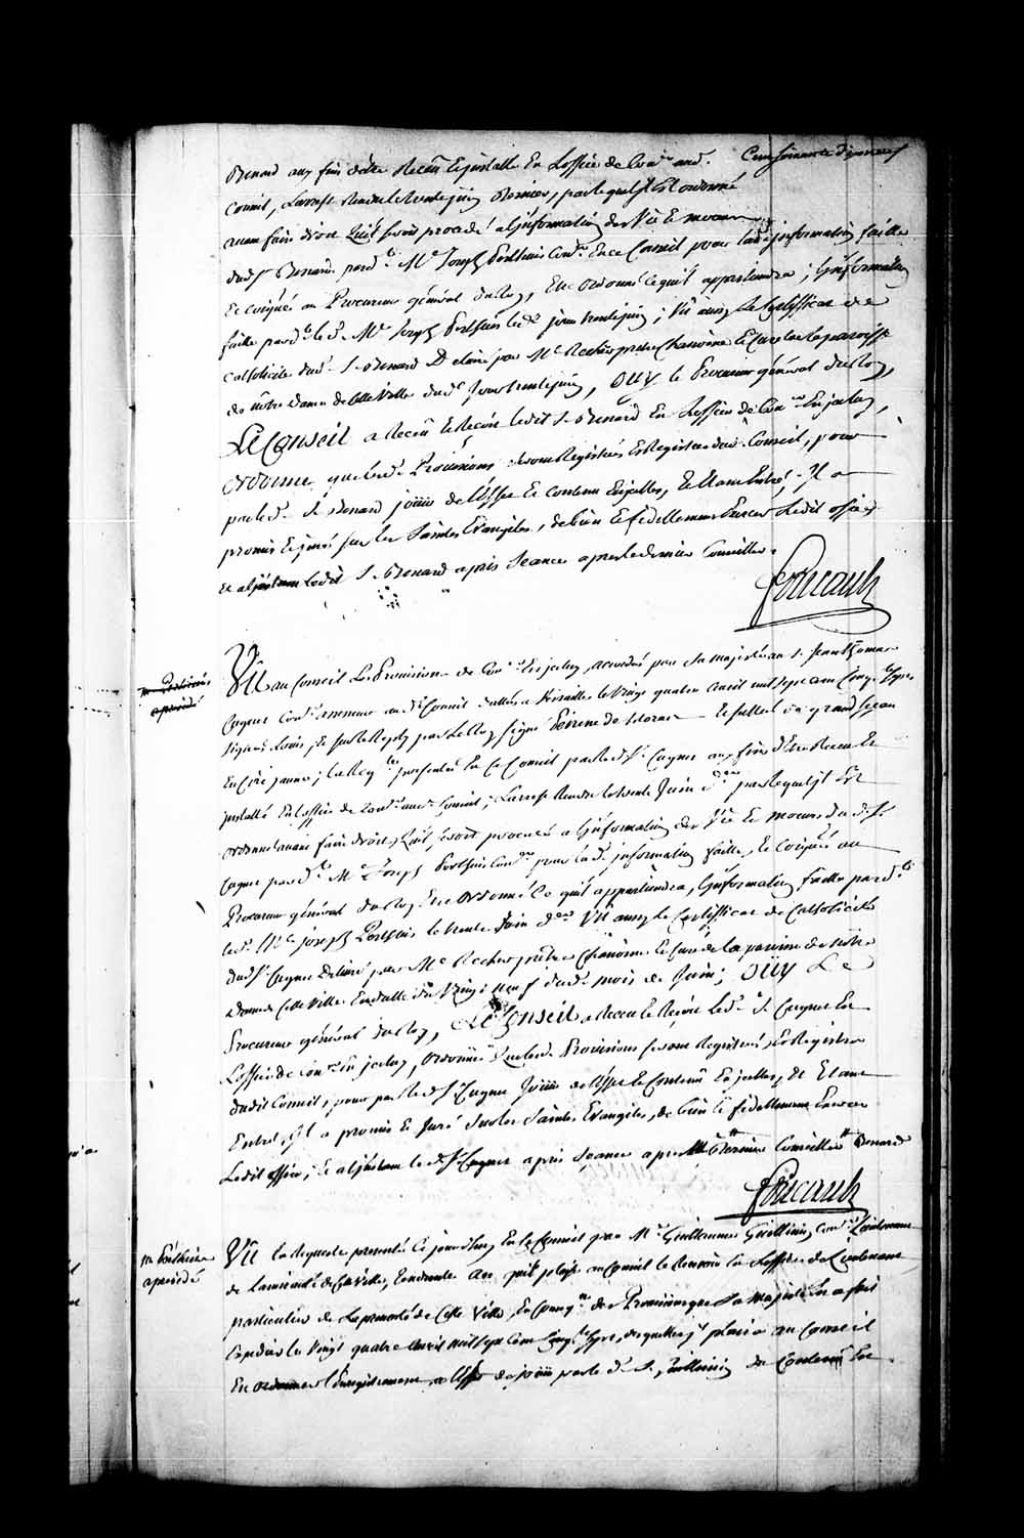 Benard aux fins d'Etre Receu Et jnstallé En Loffice de Con.er aud.
Conseil, Larrest Rendu le trente juin dernier, par lequel jl Est ordonné
avant faire droit Quil seroit procedé a Linformation des Vie Et moeurs
dud. Sr Benard pard.t Me Joseph Perthuis Con.er En ce Conseil pour lad. jnformation faitte
Et Coīquée au Procureur général du Roy, Etre Ordonné ce quil appartiendra; Linformation
faitte pard.t led. Me Joseph Perthuis led. jour trente juin; Vû aussy le Certifficat de
Catholicité dud. Sr Benard Délivré par Me Recher prêtre Chanoine Et Curé de la paroisse
de nôtre Dame de cette Ville dud. Jour trente juin, OUY le Procureur général du Roy,
LE Conseil a Receu Et Reçoit ledit Sr Benard En Loffice de Con.er En jceluy,
ordonne que lesd. Provisions seront Registrées Es Registres dud. Conseil, pour
par led. Sr Benard joüir de l'Effet Et contenu En jcelles, Et Etant Entré, Jl a
promis Et juré sur les Saintes Evangiles, de bien Et fidellement Exercer Ledit office
et a l'jnstant Ledit Sr Benard a pris seance apres le dernier Conseiller.
Foucault
m. Perthuis
a procédé
VÛ au Conseil Les Provisions de Con.er En jceluy, accordées par Sa majesté au S. Jean Thomas
Cugnet Con.er assesseur au d. Conseil dattées a Versailles le Vingt quatre avril mil sept cent Cinq.te
signées Louis, Et sur le Reply par Le Roy signé Peirenc de Moras Et scellées du grand sceau
En Cire jaune; la Req.te presentée En Ce Conseil par led. Sr Cugnet aux fins d'Etre Receu Et
jnstallé En Loffice de Con.er aud. Conseil; Larrest Rendu le trente Juin d.er par lequel jl Est
ordonné avant faire droit, Quil seroit procedé a Linformation des Vie Et moeurs du d. Sr
Cugnet pard.t Me Joseph Perthuis Con.er pour lad. jnformation faitte, Et Coīquée au
Procureur général du Roy Etre ordonné Ce quil appartiendra, Linformation faitte pard.t
led. Me joseph Perthuis le trente Juin d.er VÛ aussy le Certifficat de Catholicité
dud. Sr Cugnet Délivré par Me Recher prêtre Chanoine Et Curé de la paroisse de nôtre
dame de Cette Ville En datte du Vingt neuf dud. mois de Juin; OUY Le
Procureur général du Roy, LE Conseil a Receu Et Reçoit Led. Sr Cugnet En
Loffice de Con.er En jceluy, ordonne que lesd. Provisions seront Registrées Es Registres
dudit Conseil, pour par led. Sr Cugnet Joüir de l'Effet Et Contenu En jcelles, Et Etant
Entré, Jl a promis Et Juré Sur les Saintes Evangiles, de bien Et fidellement Exercer
Ledit office, Et a l'jnstant led. Sr Cugnet a pris seance apres Benard
Foucault
m. Perthuis
a procédé
VÛ la Requeste presentée Ce jourd'huy En Ce Conseil par Me Guillaume Guillimin, Con.er Lieutenant
de Lamirauté de Cette Ville, Tendante a ce quil plaise au Conseil le Recevoir En Loffice de Lieutenant
particulier de la prevosté de Cette Ville, En Conseq.ce des Provisions que Sa majesté lui a fait
Expedier le Vingt quatre avril mil sept Cent Cinq.te, desquelles jl plaira au Conseil
En ordonner l'Enregistrement, a l'Effet de joüir par led. Sr Guillimin du Contenu En